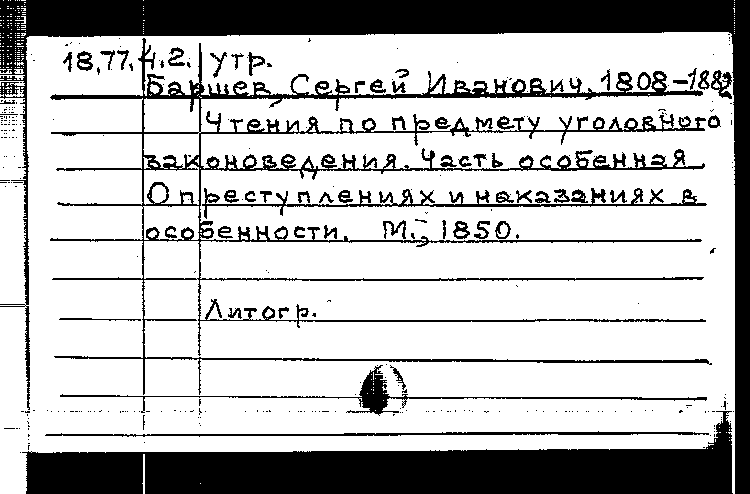 18.77.4.2. утр.
Баршев, Сергей Иванович, 1808-1882
Чтения по предмету уголовного
законоведения. Часть особенная.
О преступлениях и наказаниях в
особенности. М., 1850.
Литогр.